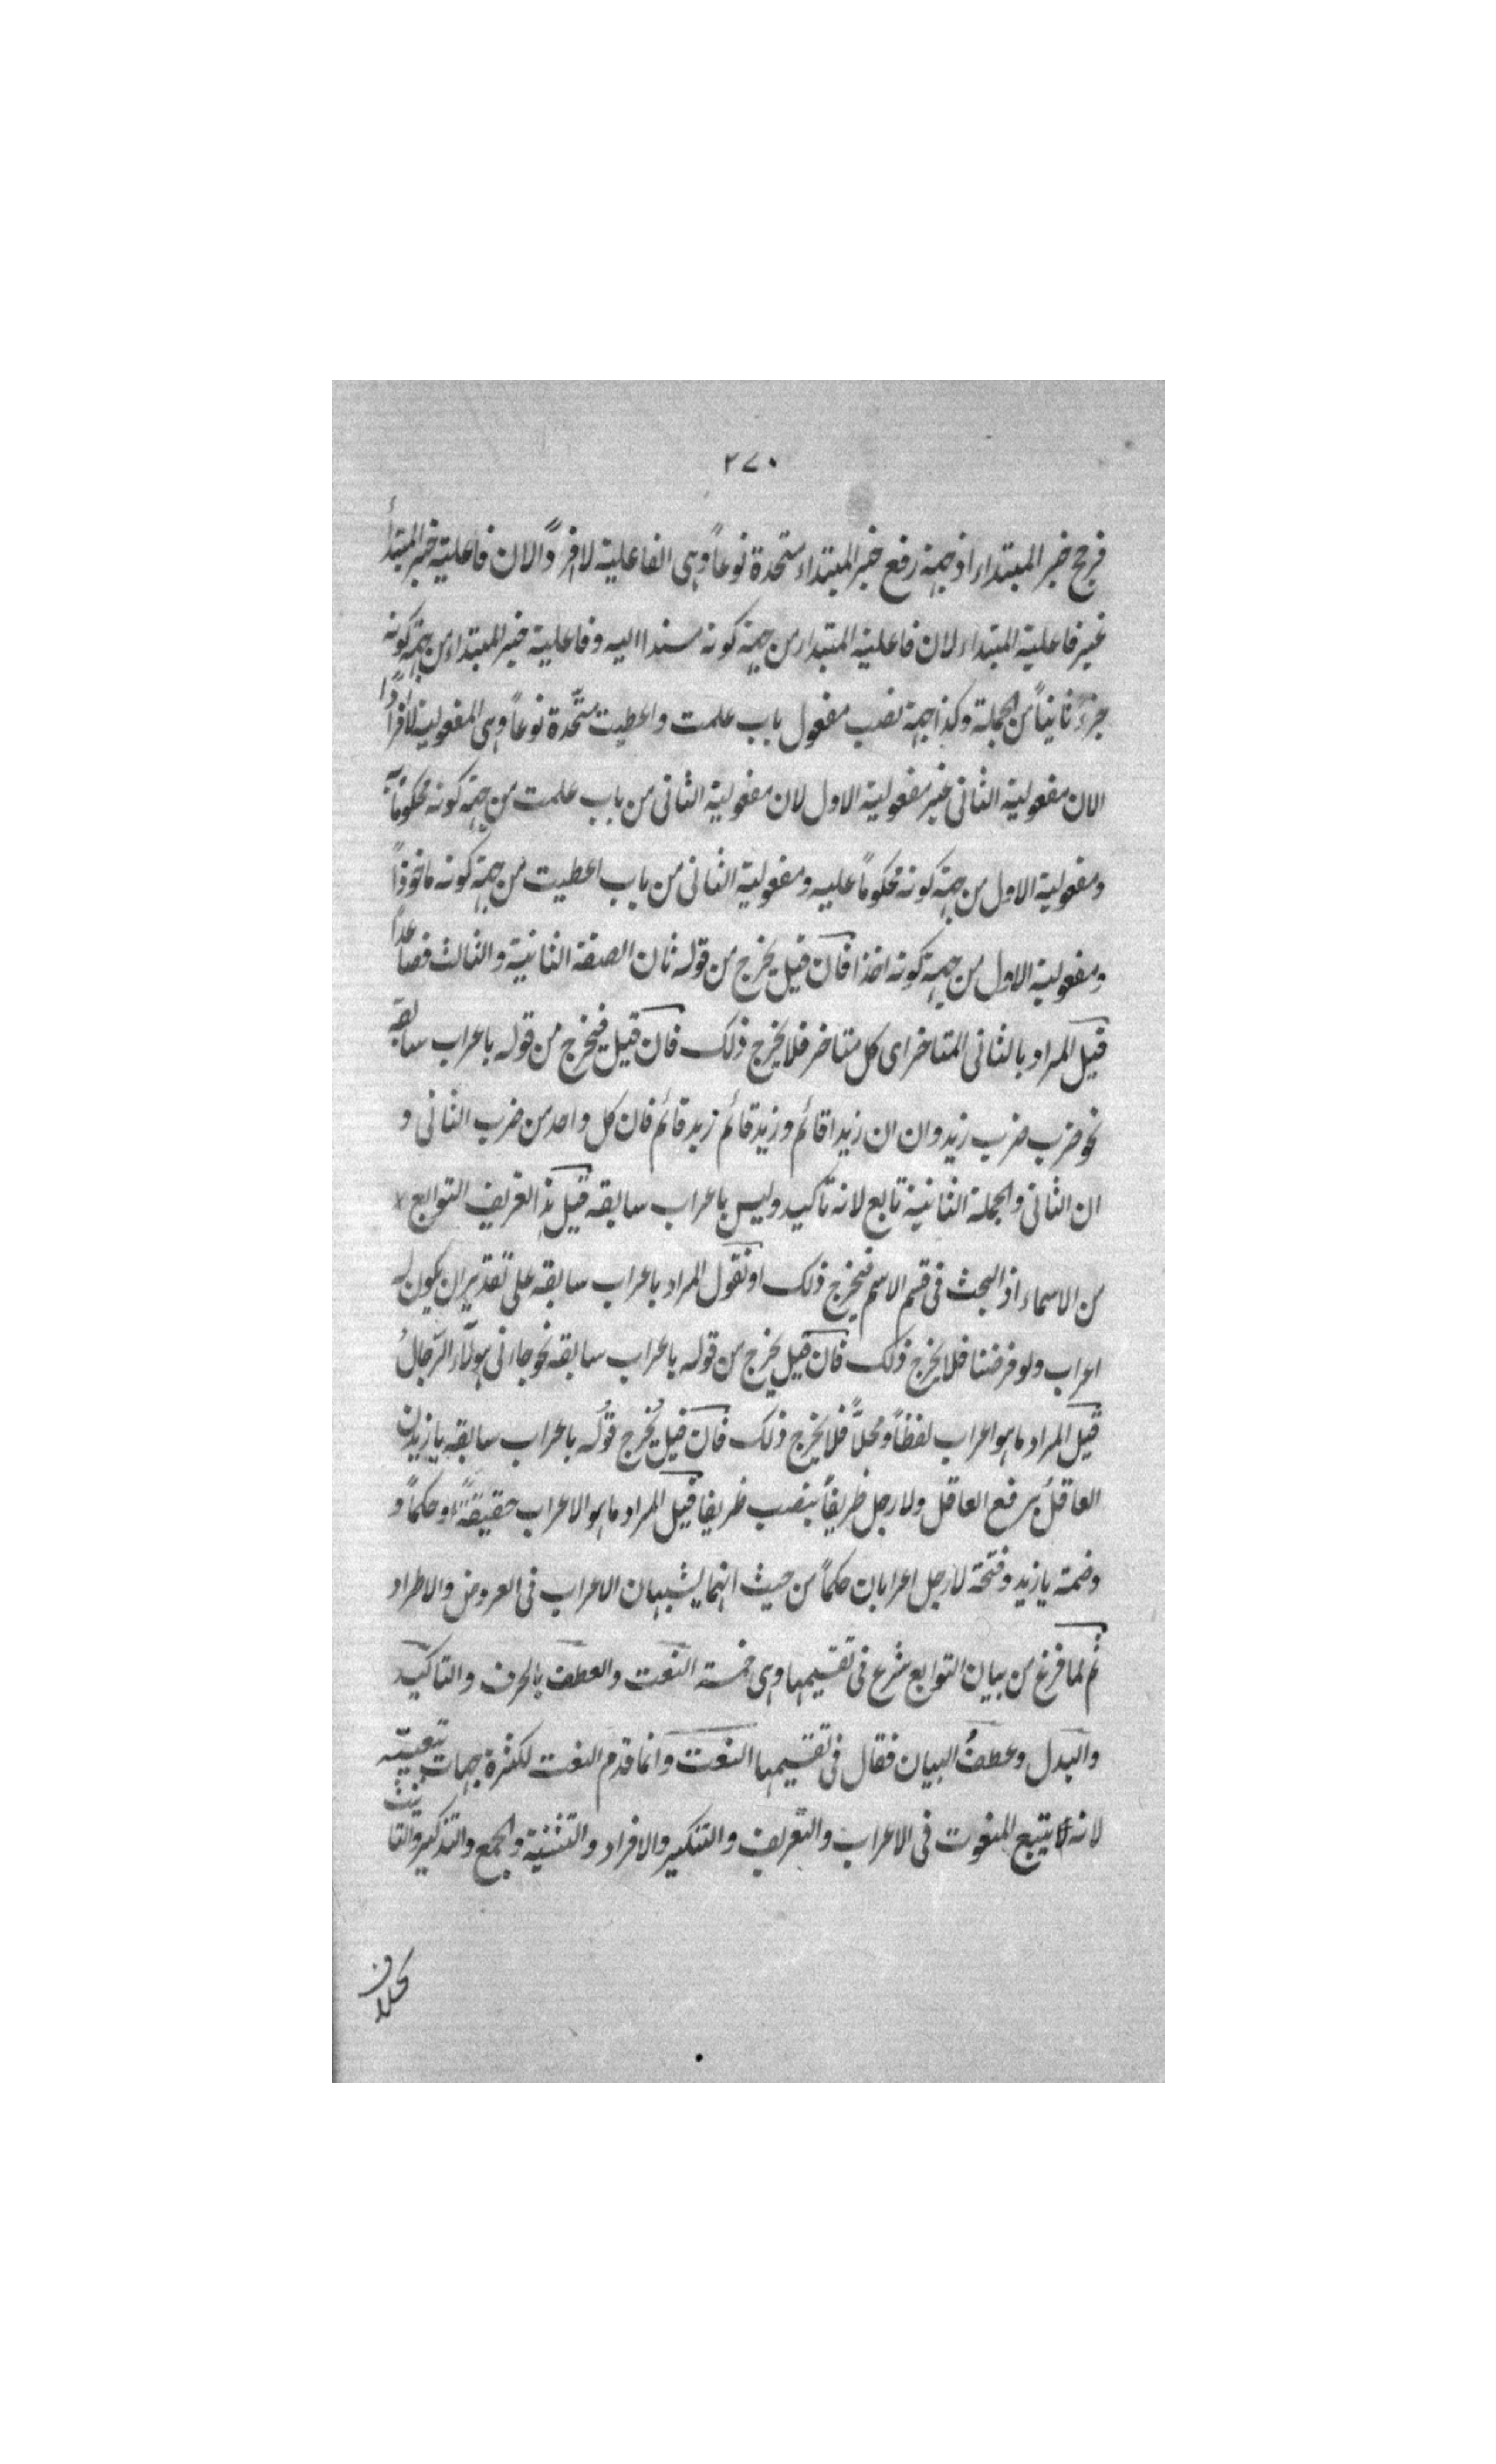 ٢٧٠
فخرج خبر المبتداء اذ جهة رفع خبر المبتداء متحدة نوعاً وهى الفاعلية لا فرداً لان فاعلية خبر المبتدأ
غير فاعلية المبتداء لان فاعلية المبتداء من جهة كونه مسندا اليه وفاعلية خبر المبتداء من جهة كونه
جزءً ثانياً من الجملة وكذا جهة نصب مفعول باب علمت واعطيت متّحدة نوعاً وهى المفعولية لا فراداً
لان مفعولية الثانى غير مفعولية الاول لان مفعولية الثانى من باب علمت من جهة كونه محكوماً به
ومفعولية الاول من جهة كونه محكوماً عليه ومفعولية الثانى من باب اعطيت من جهة كونه ماخوذاً
ومفعولية الاول من جهة كونه اخذا فان قيل يخرج من قوله ثان الصفة الثانية والثالث فصاعداً
قيل المراد بالثانى المتاخر اى كل متاخر فلا يخرج ذلك فان قيل فيخرج من قوله باعراب سابقه
نحو ضرب ضرب زيد وان ان زيدا قائم وزيد قائم زيد قائم فان كل واحد من ضرب الثانى و
ان الثانى والجملة الثانية تابع لانه تاكيد وليس باعراب سابقه قيل هذا تعريف التوابع
من الاسماء اذ البحث فى قسم الاسم فيخرج ذلك او نقول المراد باعراب سابقه على تقدير ان يكون له
اعراب ولو فرضنا فلا يخرج ذلك فان قيل يخرج من قوله باعراب سابقه نحو جاءنى هولاء الرجالُ
قيل المراد ما هو اعراب لفظاً ومحلاً فلا يخرج ذلك فان قيل يُخرج قولُه باعراب سابقه يا زيدن
العاقلُ برفع العاقل ولا رجل ظريفاً بنصب ظريفا قيل المراد ما هو الاعراب حقيقةً او حكماً و
وضمة يا زيد وفتحة لا رجل اعرابان حكماً من حيث انهما يشبهان الاعراب فى العروض والاطراد
ثم لما فرغ من بيان التوابع شرع فى تقسيمها وهى خمسة النعت والعطف بالحرف والتاكيد
والبدل وعطفُ البيان فقال فى تقسيمها النعت وانما قدم النعت لكثرة جهات تبعيّته
لانه يتبع المنعوت فى الاعراب والتعريف والتنكير والافراد والتثنية والجمع والتذكير والتانيث
بخلاف